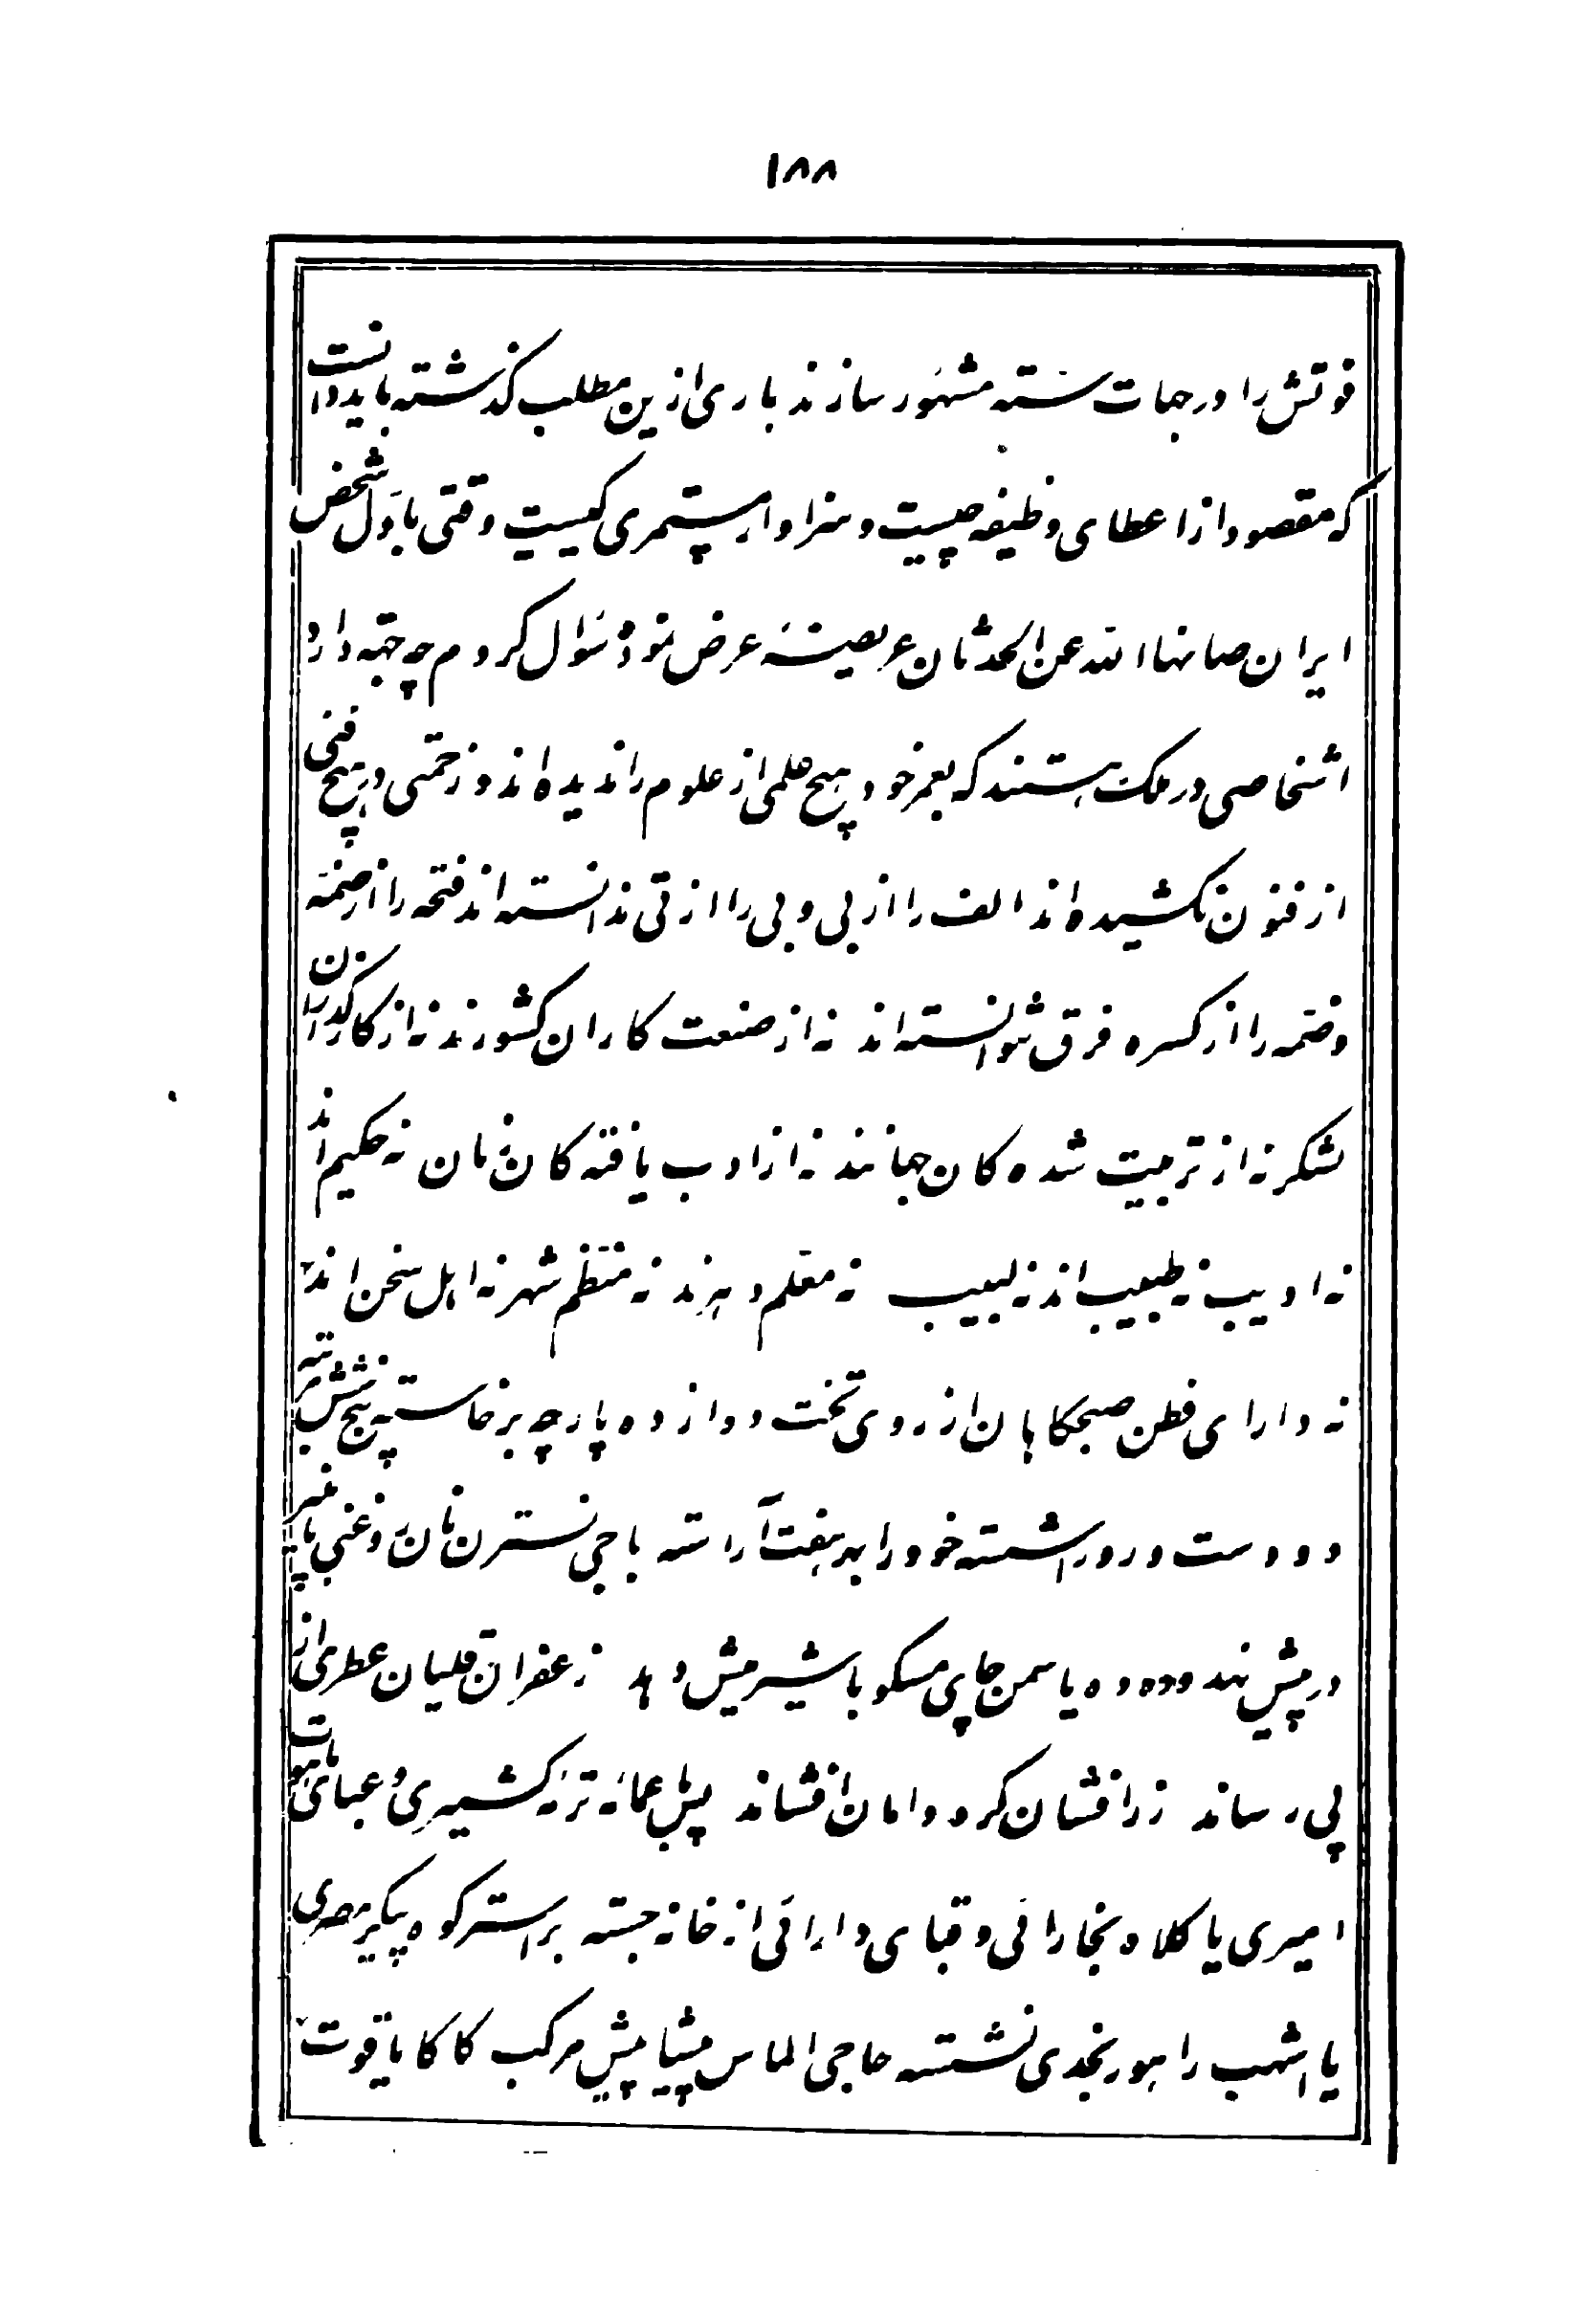 ۱۸۸
فوتش را در جهات سته مشهور سازند باری ازین مطلب گذشته باید دانست
که مقصود از اعطای وظیفه چیست و سزاوار مستمری کیست وقتی باول شخص
ایران صانها الله عن الحدثان عریضه عرض نموده سؤال کردم چه جهة دارد
اشخاصی در ملک هستند که بعمر خود هیچ علمی از علوم را ندیده‌اند و زحمتی در هیچ فنی
از فنون نکشیده‌اند الف را از بی و بی را از تی ندانسته‌اند فتحه را از ضمه
و ضمه را از کسره فرق نتوانسته‌اند نه از صنعت کاران کشورند نه از کارگذاران
لشکر نه از تربیت شده کان جهانند نه از ادب یافته کان زمان نه حکیم‌اند
نه ادیب نه طبیب‌اند نه لبیب نه معلم دهرند نه منتظم شهر نه اهل سخن‌اند
نه دارای فطن صبحگاهان از روی تخت دوازده پارچه برخاسته پنج شش مرتبه
دو دست و رو را شسته خود را بهر هفت آراسته باجی نسترن نان روغنی با پنیر
در پیش نهد و دده یاسمن چای مسکو با شیر میش دهد زعفران قلیان عطری از
پی رساند زرافشان گرد دامان افشاند پس با عمامه ترمه کشمیری و عبای
امیری یا کلاه بخارائی و قبای دارائی از خانه جسته بر استر کوه پیکر مصری
یا اشهب راهوار نجدی نشسته حاجی الماس پیشاپیش مرکب کاکا یاقوت